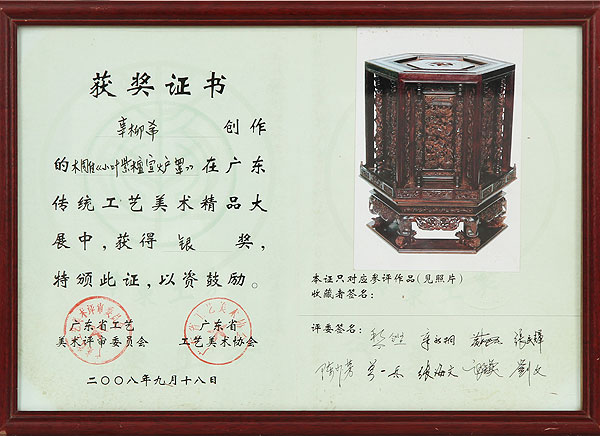 获奖证书
辜柳希 创作
的木雕《小叶紫檀宣炉罩》在广东
传统工艺美术精品大
展中,获得 银 奖,
特颁此证,以资鼓励。
广东省工艺
美术评审委员会
广东省
工艺美术协会
二〇〇八年九月十八日
本证只对应参评作品(见照片)
收藏者签名:
评委签名: